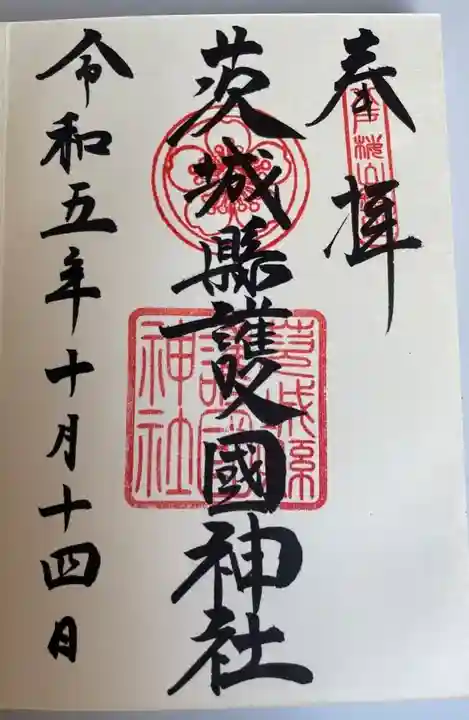 奉拝
水戸桜山
茨城縣護國神社
茨城縣護國神社
令和五年十月十四日